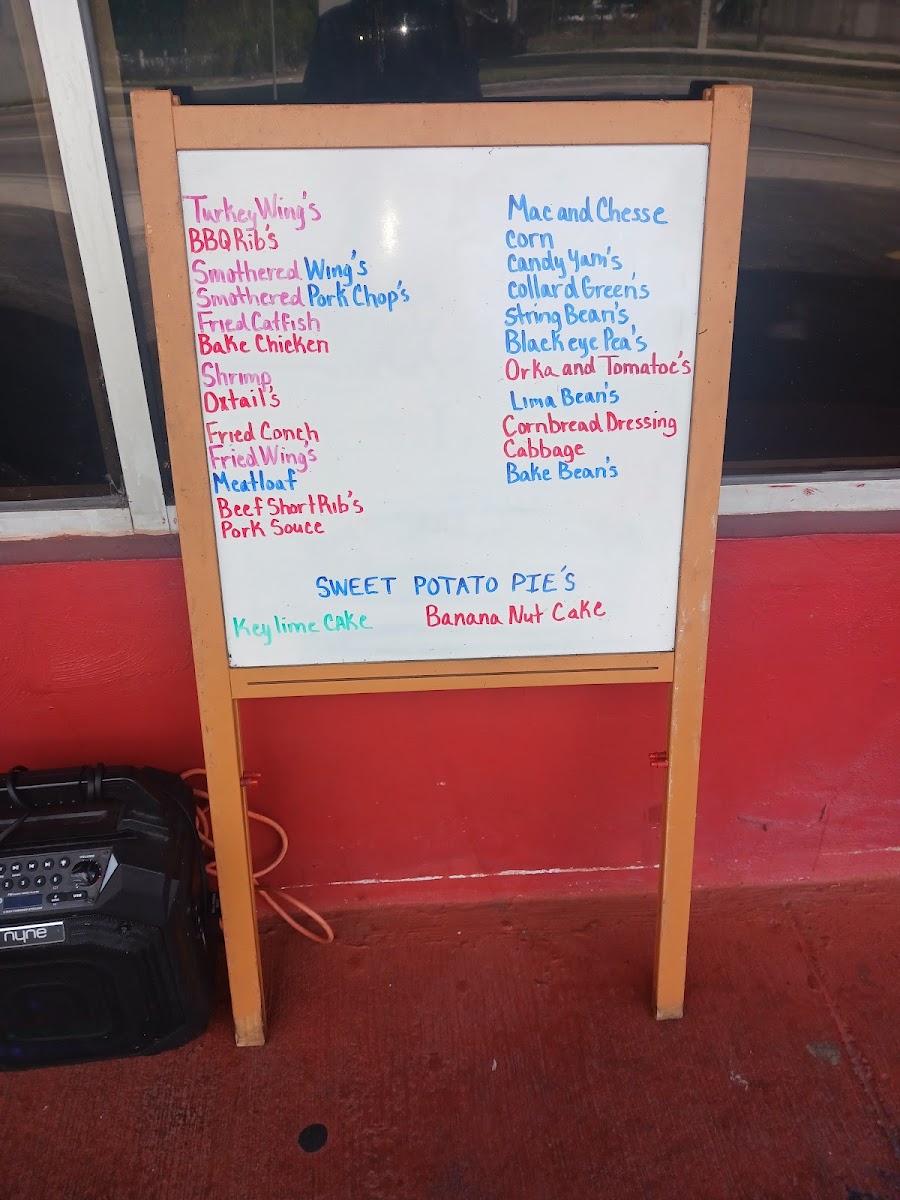 Turkey Wing's
BBQ Rib's
Smothered Wing's
Smothered Pork Chop's
Fried Catfish
Bake Chicken
Shrimp
Oxtail's
Fried Conch
Fried Wing's
Meatloaf
Beef Short Rib's
Pork Souce
Mac and Chesse
Corn
Candy Yam's
Collard Green's
String Bean's
Blackeye Pea's
Orka and Tomatoe's
Lima Bean's
Cornbread Dressing
Cabbage
Bake Bean's
SWEET POTATO PIE'S
Key lime CAKe
Banana Nut Cake
nyne